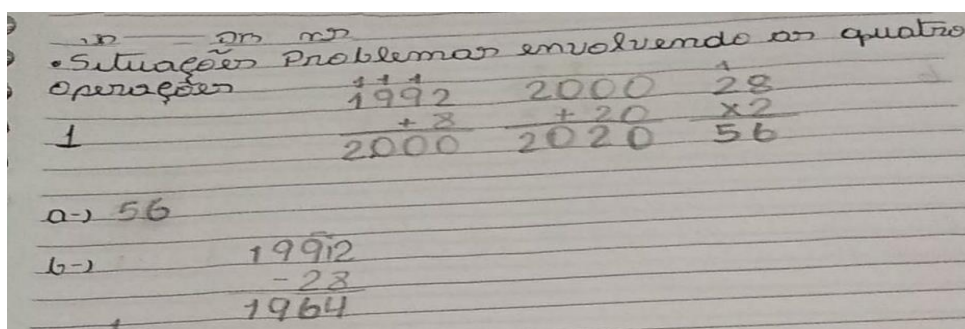 •Situações Problemas envolvendo as quatro
operações
1 1 1
1992 2000 28
+8 +20 x2
1 2000 2020 56
a-) 56
b-) 1992
-28
1964